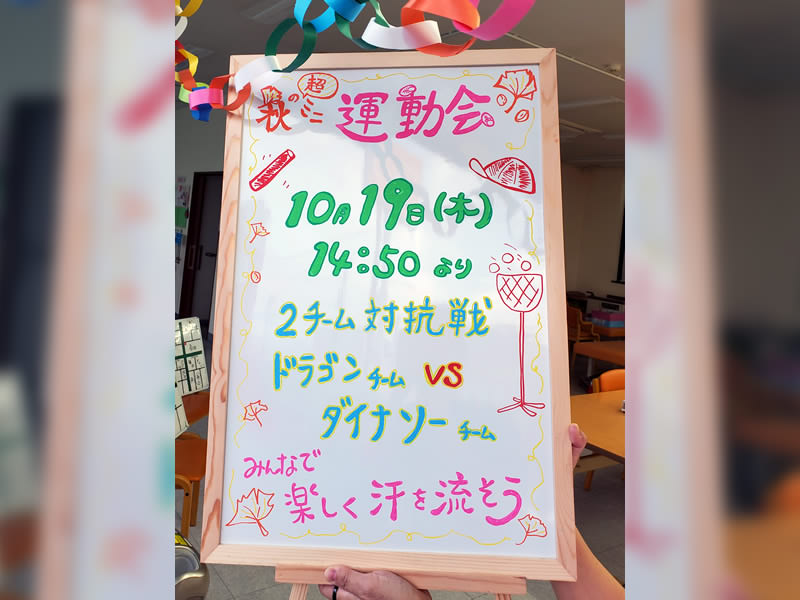 秋の超ミニ運動会
10月19日(木)
14:50より
2チーム対抗戦
ドラゴンチーム VS
ダイナソーチーム
みんなで
楽しく汗を流そう